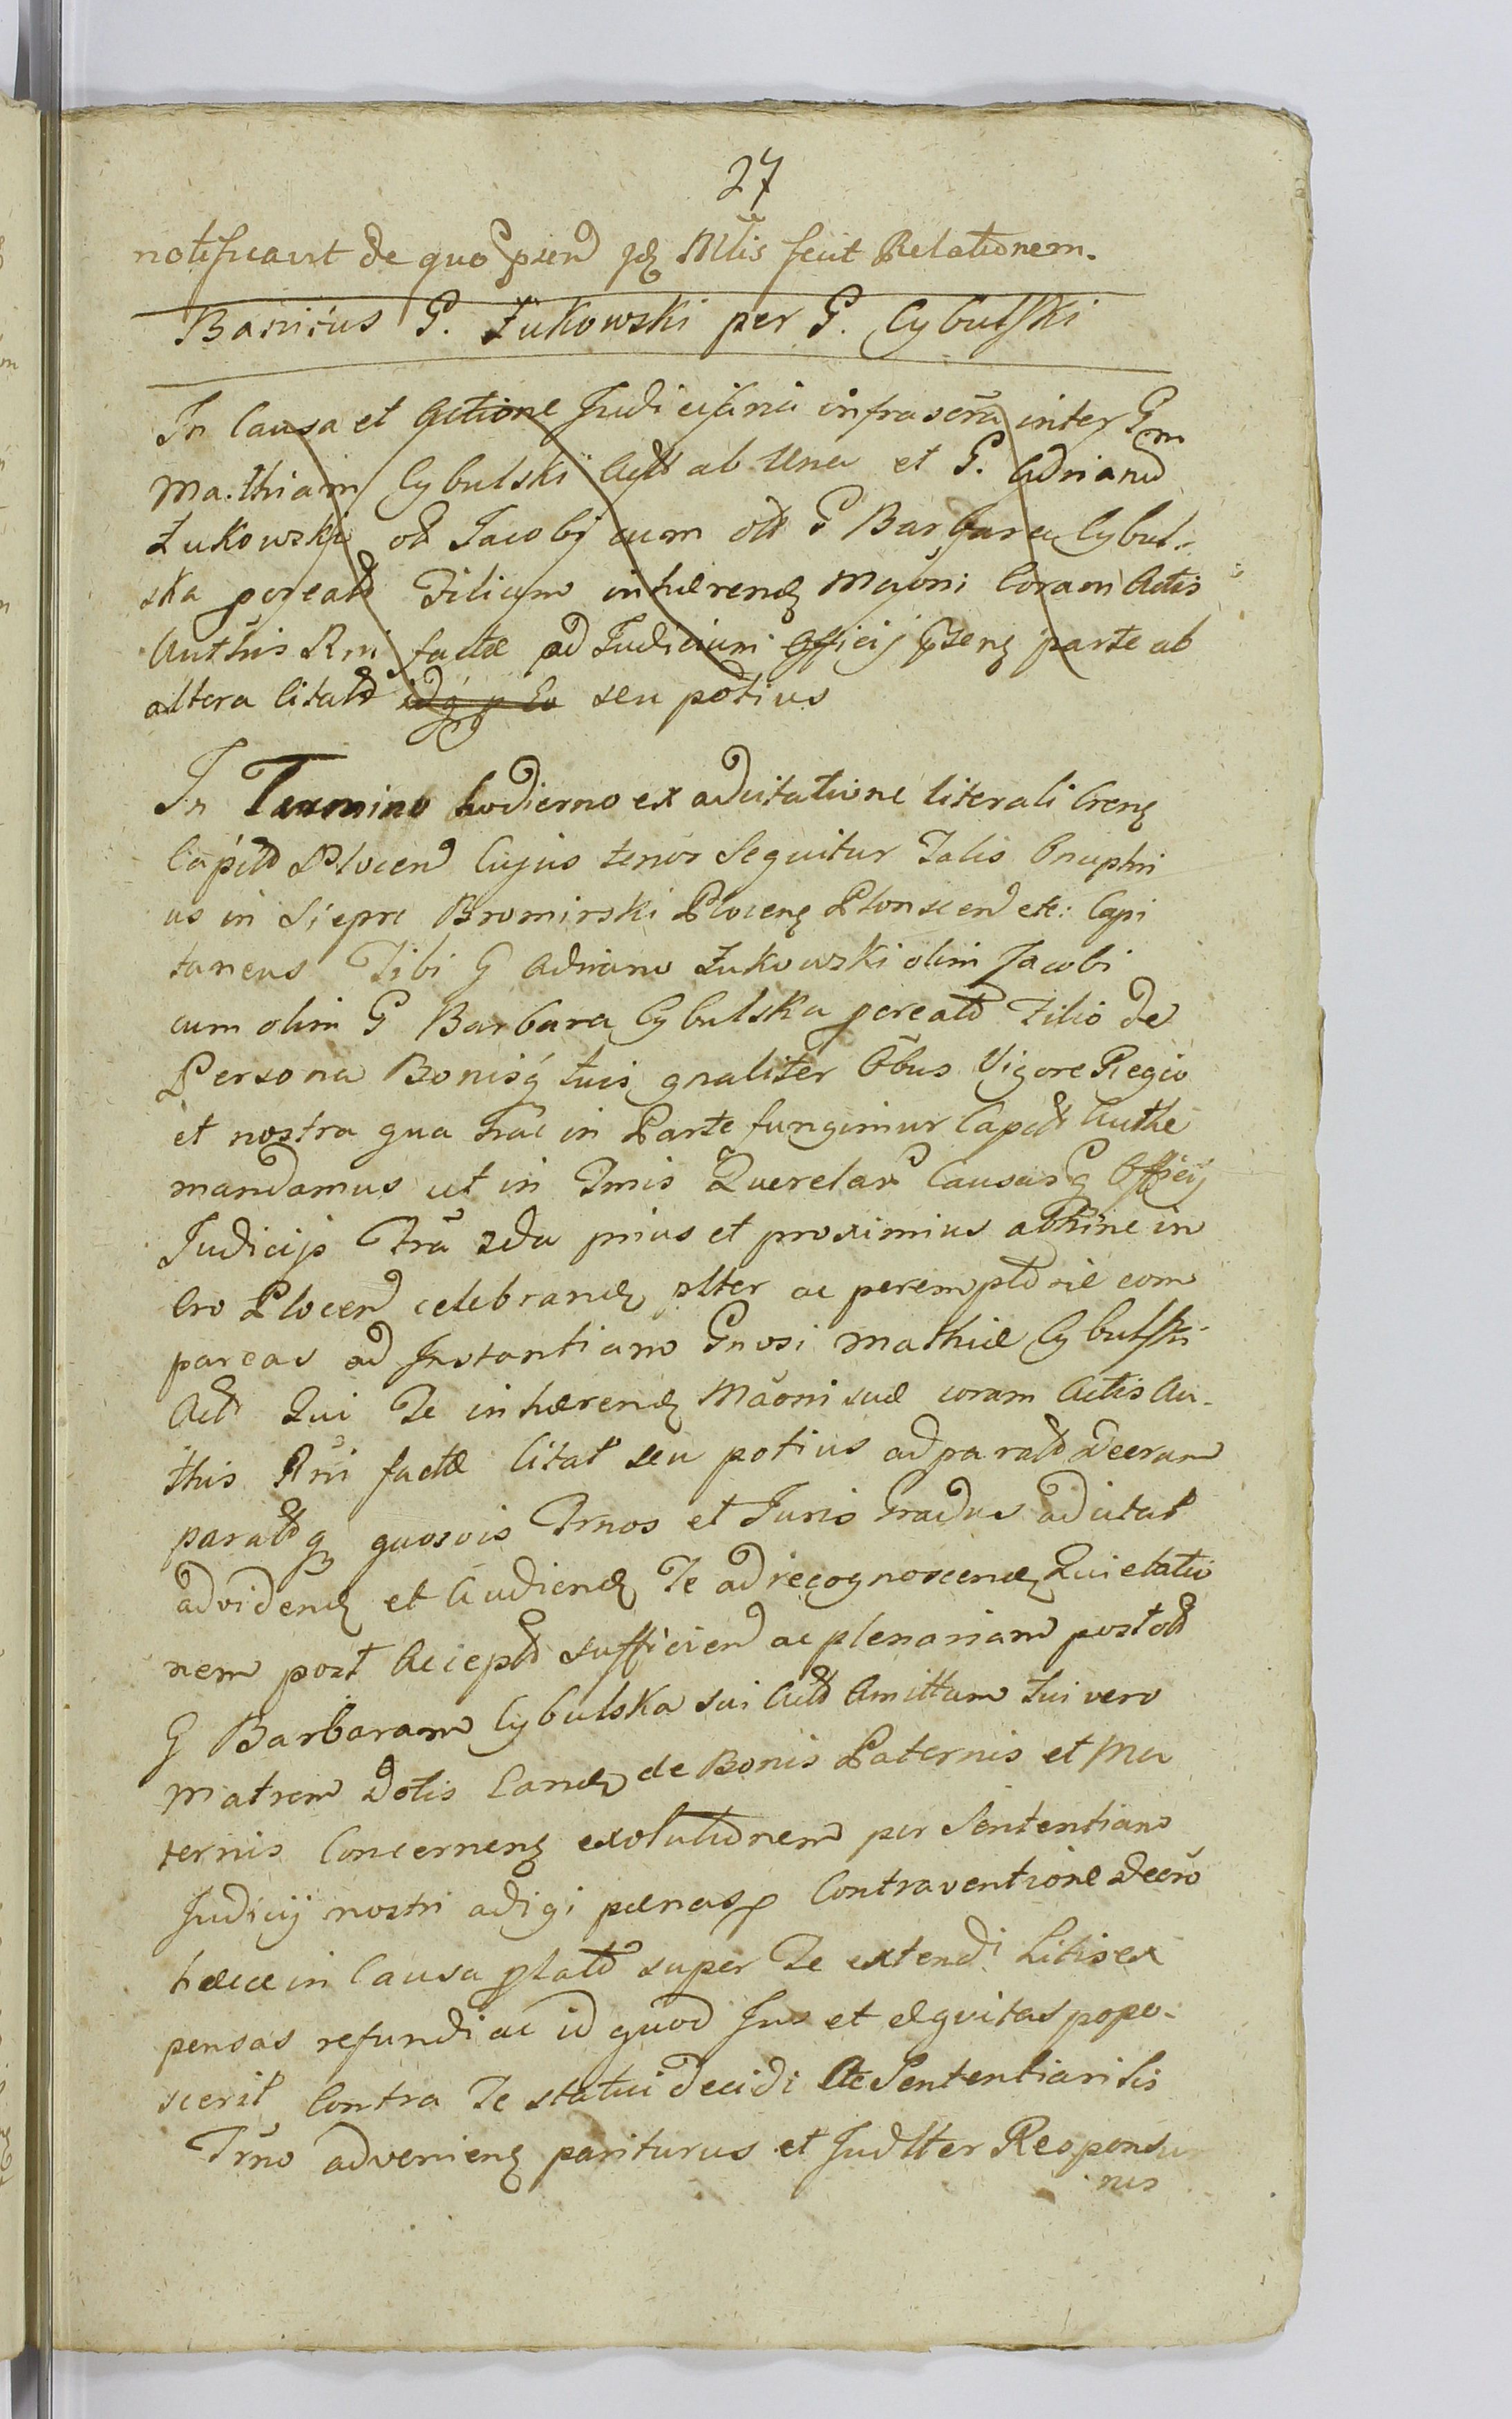 27
notificavit de quo psen Mltis fecit Relationem.
Banitus G. Żukowski per G. Cybulski
In Causa et Actione Judiciaria infrascra inter G
m
Mathiam Cybulski Act ab Una et G. Adrianu
Żukowski ol Jacobi cum oll G Barbara Cybul-
ska pcreat Filium inhærend Mãoni Coram Actis
Authis Rni factæ ad Judicium Officij psens parte ab
altera Citat seu potius
In Termino hodierno ex adcitatione literali Crens
Capitl Plocen Cujus tenor Sequitur Talis Onuphri
us in Siepre Bromirski Plocens Plonscen etc: Capi
taneus Tibi G Adriano Żukowski olim Jacobi
cum olim G Barbara Cybulska pcreat Filio de
Persona Bonisq tuis gnaliter Obus Vigore Regia
et nostra qua hac in Parte fungimur Capitl Authe
mandamus ut in Tmis Querelar Causarq Officij
Judicijs Fra 2da prius et proximius abhinc in
Cro Plocen celebrand plter ac peremptorie com
pareas ad Instantiam Gnosi Mathiæ Cybulski
Act Qui Te inhærend Mãoni suæ coram Actis Au-
this Rni factæ Citat seu potius ad parat Decrum
paratq quosvis Trnos et Juris Gradus adcitat
ad vidend et Audiend Te ad recognoscend Quietatio
nem post Accept sufficien ac plenariam post oll
G Barbaram Cybulska sui Act Amittam tui vero
Matrem Dotis Cand de Bonis Paternis et Ma
ternis Concernens exolutionem per Sententiam
Judicij nostri adigi pænasq Contraventione Decro
hæcce in Causa plat super Te extendi Litis ex
pensas refundi ac id quod Jus et æquitas popo-
scerit Contra Te statui decidi Ac Sententiari sis
Trno advenien pariturus et Judlter Responsu
rus